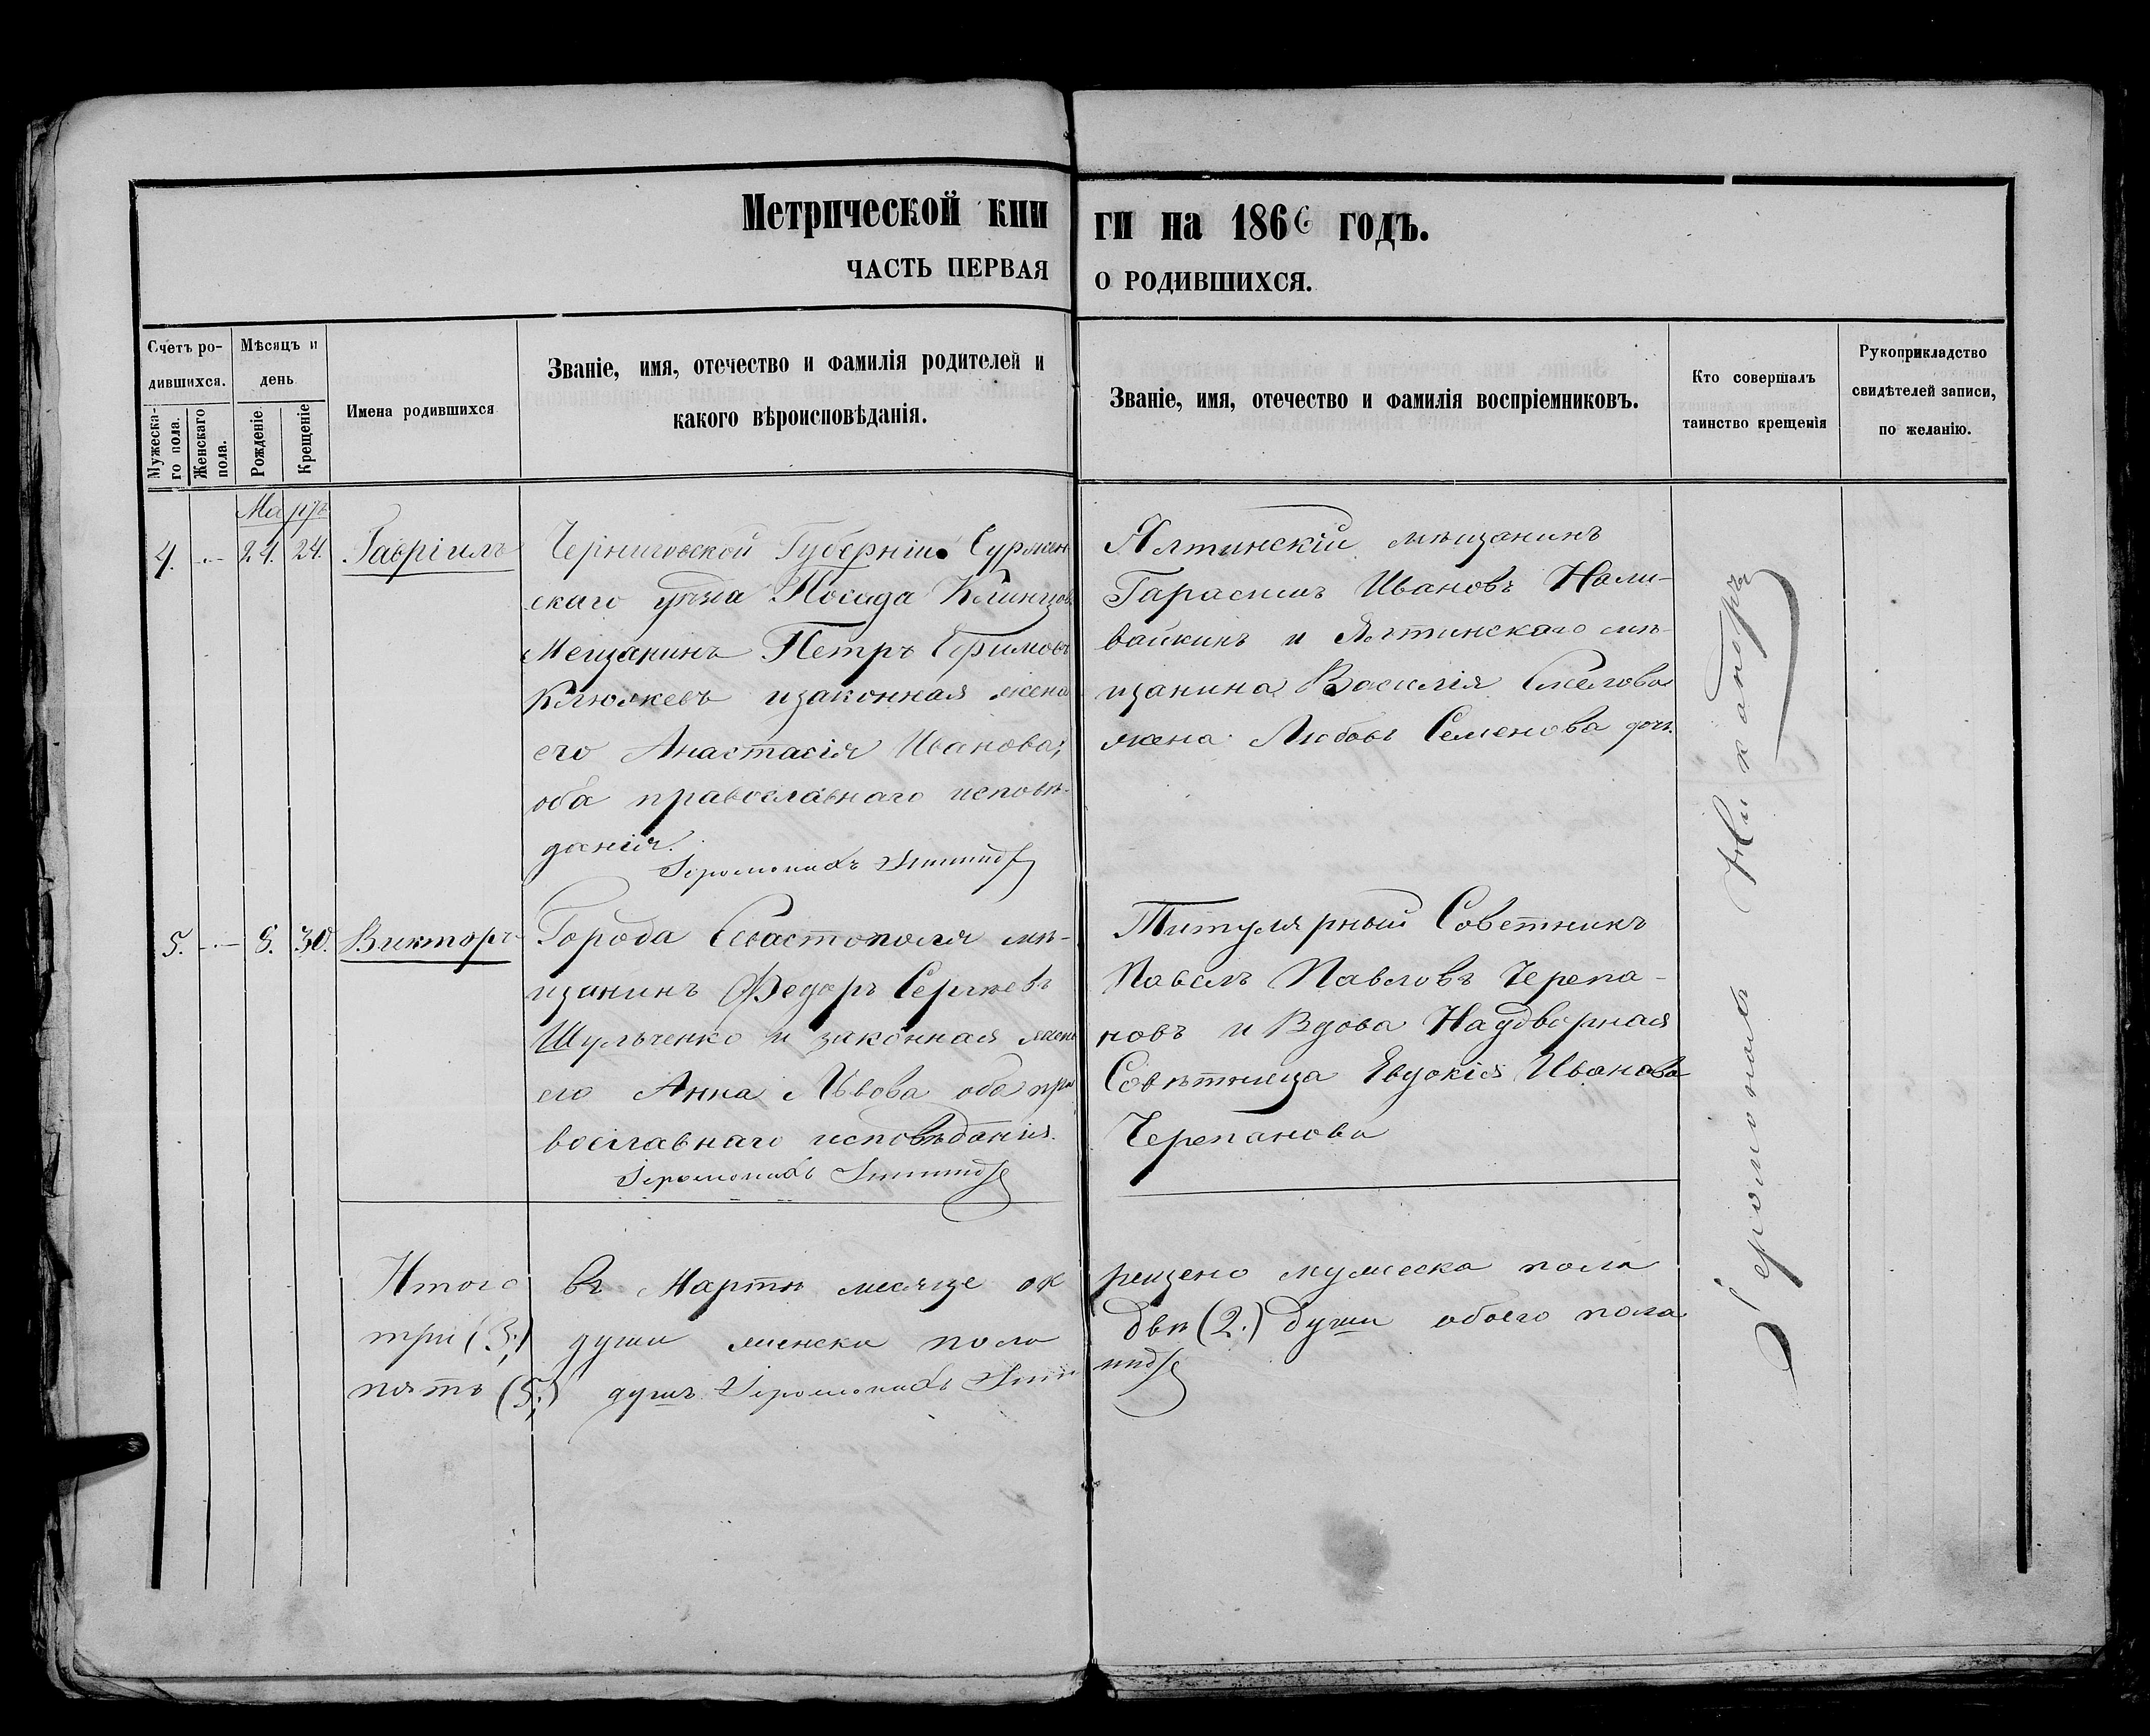 Метрической кни
ги на 1866 годъ.
ЧАСТЬ ПЕРВАЯ
О РОДИВШИХСЯ.
Счетъ ро-
дившихся.
Мужеска-
го пола.
Женскаго
пола.
Мѣсяцъ и
день
Рожденіе
Крещеніе
Имена родившихся
Званіе, имя, отечество и фамилія родителей и
какого вѣроисповѣданія.
Званіе, имя, отечество и фамилія воспріемниковъ.
Кто совершалъ
таинство крещенія
Рукоприкладство
свидѣтелей записи,
по желанію.
Мартъ
4. 24. 24. Гавріилъ
Черниговской Губерніи
скаго уѣзда Посада Клинцов
Мещанинъ Петръ Ефимовъ
изаконная жена
его Анастасія Иванова;
оба православнаго исповѣ-
данія.
Іеромонахъ
Ялтинскій мѣщанинъ
Гарасимъ Ивановъ Нали-
вайкинъ и Ялтинскаго мѣ-
щанина Василія
жена Любовь Семенова дочь.
5. 8. 30. Викторъ
Города Севастополя мѣ-
щанинъ Федоръ Сергѣевъ
Шульченко и законная жена
его Анна Львова оба пра
вославнаго исповѣданія.
Іеромонахъ
Титулярный Советникъ
Павелъ Павловъ Черепа-
новъ и Вдова Надворная
Совѣтница Евдокія Иванова
Черепанова
Іеромонахъ Никандръ
Итого въ Мартѣ месяце ок
рещено мужеска пола
три (3;) души женска пола
двѣ (2.) души обоего пола
пять (5;) душъ Іеромонахъ